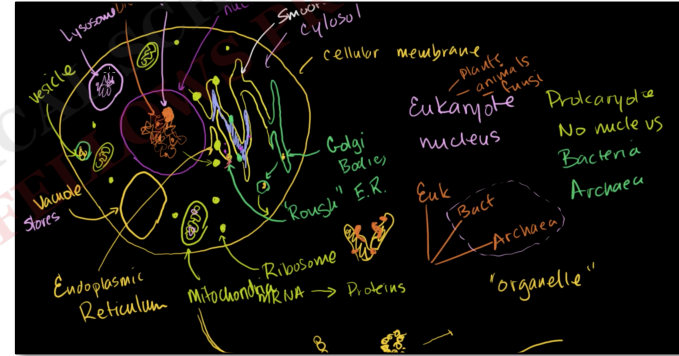 Lysosome
nuc
Smooth
Cytosol
cellular membrane
plants
animals
fungi
Vesicle
Eukaryote
nucleus
Prokaryote
No nucleus
Bacteria
Archaea
Golgi
Bodies
"Rough" E.R.
Vacuole
Stores
Euk
Bact
Archaea
"organelle"
Endoplasmic
Reticulum
Mitochondria
Ribosome
mRNA → Proteins